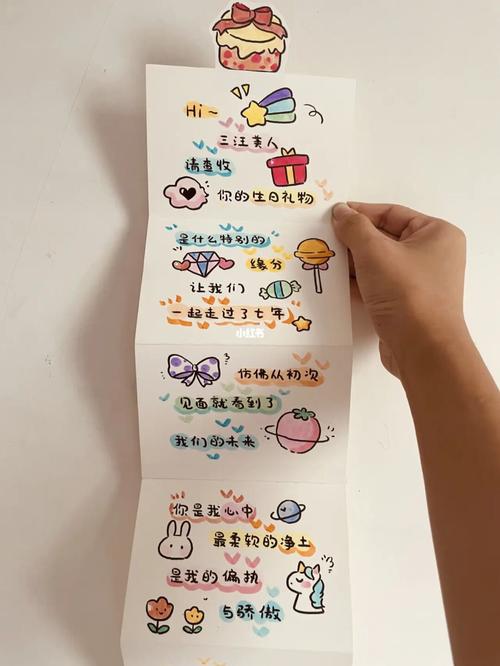 Hi~
三汪美人
请查收
你的生日礼物
是什么特别的
缘分
让我们
一起走过了七年
小红书
仿佛从初次
见面就看到了
我们的未来
你是我心中
最柔软的净土
是我的偏执
与骄傲